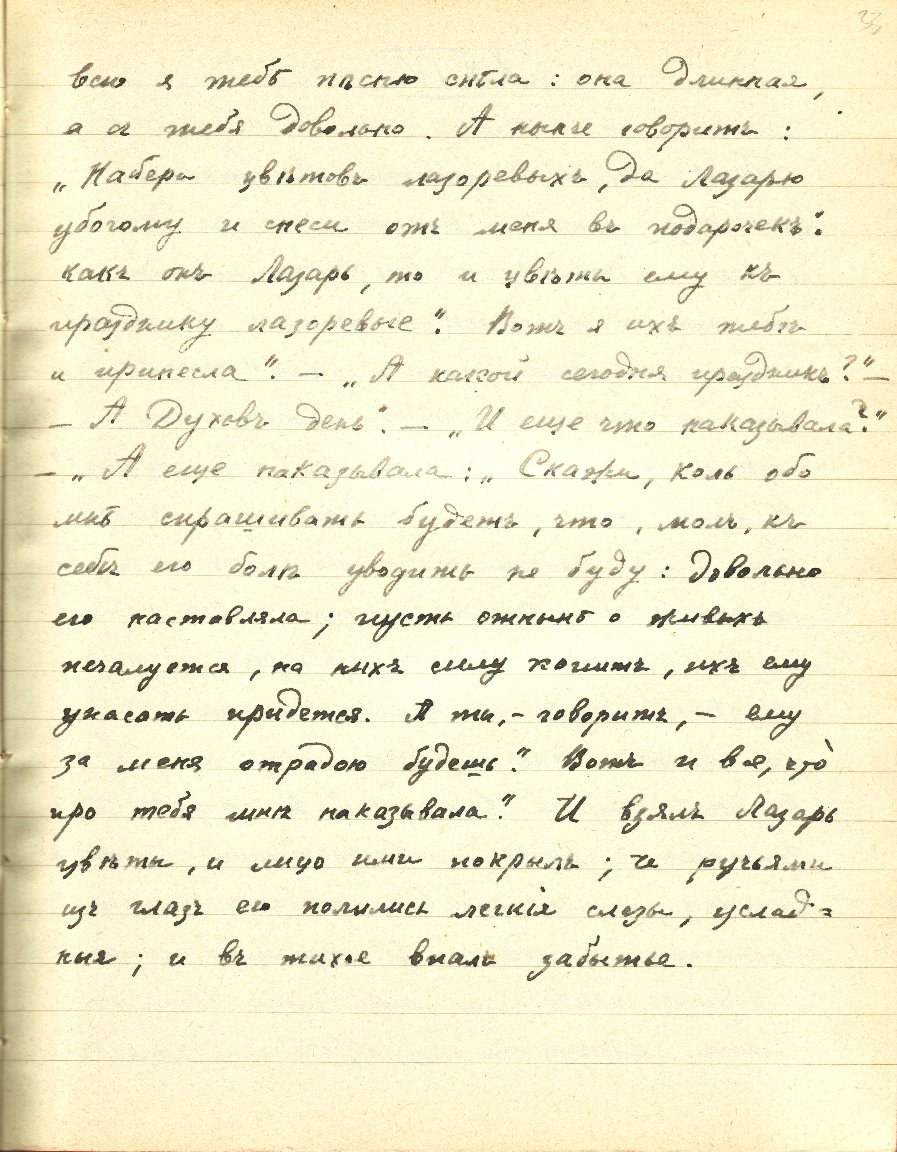 23
всю я тебѣ пѣсню спѣла : она длинная,
а съ тебя довольно. А нынче говоритъ :
„Набери цвѣтовъ лазоревыхъ, да Лазарю
убогому и снеси отъ меня въ подарочекъ“:
какъ онъ Лазарь, то и цвѣты ему къ
празднику лазоревые“. Вотъ я ихъ тебѣ
и принесла“. — „А какой сегодня праздникъ?“ —
— А Духовъ день“. — „И еще что наказывала?“
— „А еще наказывала : „Скажи, коль обо
мнѣ спрашивать будетъ, что, молъ, къ
себѣ его болѣ уводить не буду : довольно
его наставляла ; пусть отнынѣ о живыхъ
печалуется, на нихъ силу копитъ, ихъ ему
упасать придется. А ты, – говоритъ, – ему
за меня отрадою будешь“. Вотъ и все, что̀
про тебя мнѣ наказывала“. И взялъ Лазарь
цвѣты, и лицо ими покрылъ ; и ручьями
изъ глазъ его полились легкія слезы, услад=
ныя ; и въ тихое впалъ забытье.